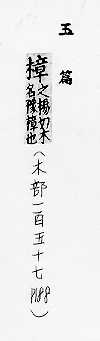 玉篇
樟 之楊切木
名豫樟也
(木部一百五十七 P188)